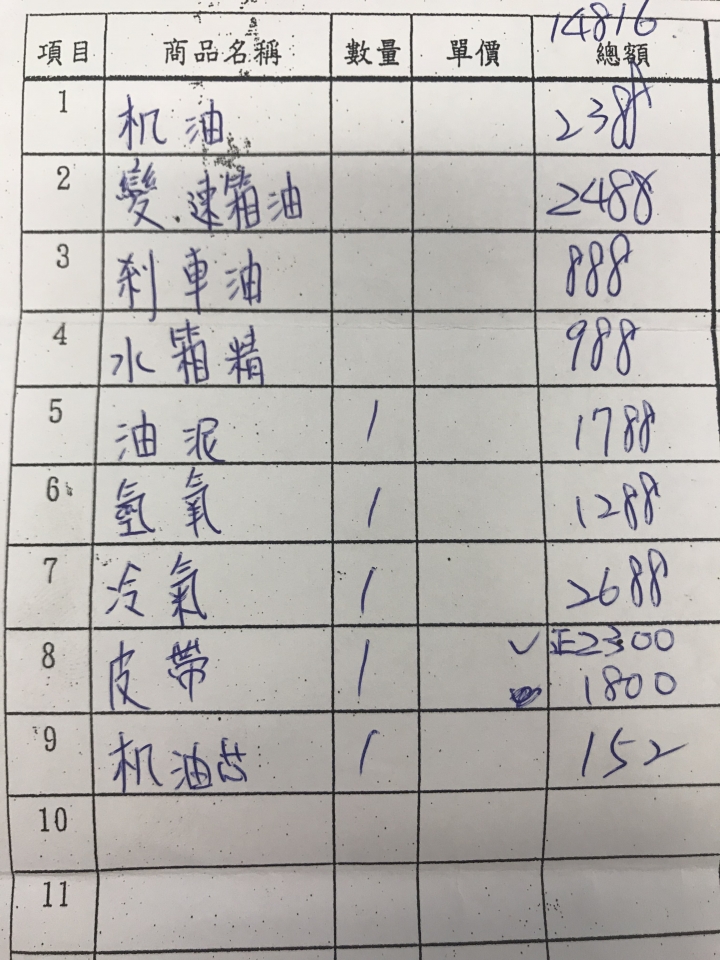 14816
項目 商品名稱 數量 單價 總額
1 机油 2388
2 變速箱油 2488
3 剎車油 888
4 水箱精 988
5 油泥 1 1788
6 氫氧 1 1288
7 冷氣 1 2688
8 皮帶 1 ✓ 正2300
1800
9 机油芯 1 152
10
11